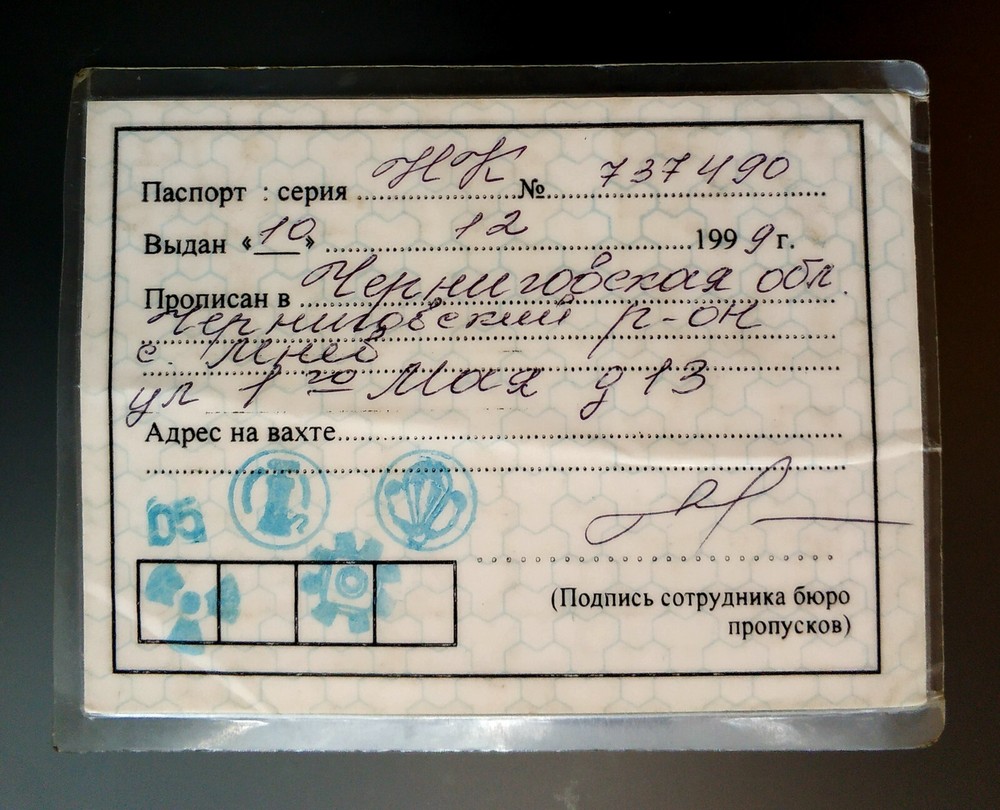 Паспорт : серия НК № 737490
Выдан «10» 12 1999 г.
Прописан в Черниговская обл.
Черниговский р-он
с. Мнев
ул 1го Мая д 13
Адрес на вахте
05
(Подпись сотрудника бюро
пропусков)